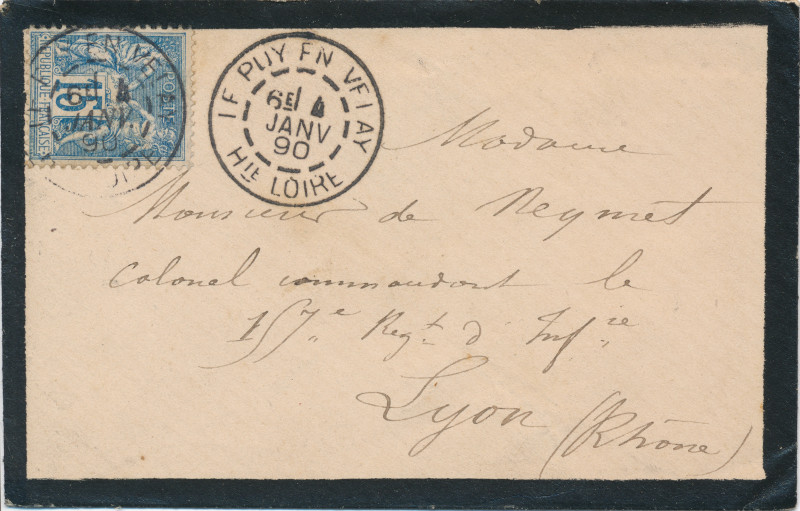 REPUBLIQUE FRANÇAISE
POSTES
15
EN VELAY
6E 4
JANV
90
LE PUY EN VELAY
6E 4
JANV
90
HTE LOIRE
Madame
Monsieur de Neymet
Colonel commandant le
157e Regt. d'Infie
Lyon (Rhône)